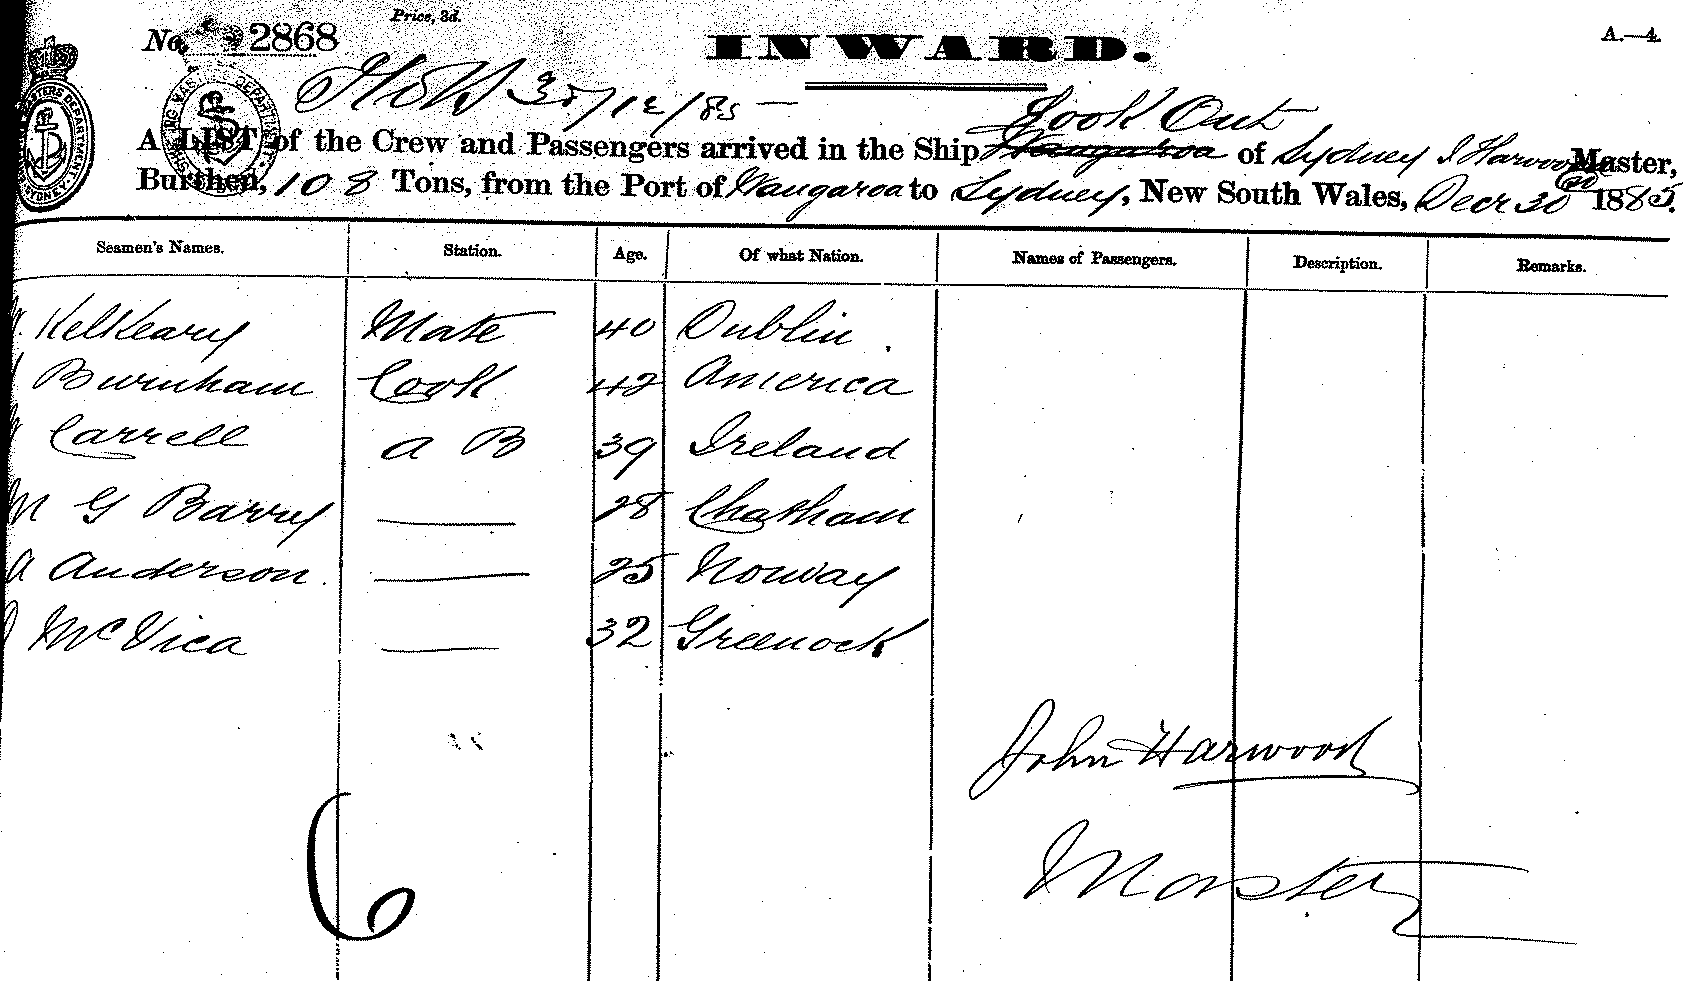 Price, 3d.
No. 2868
INWARD.
A.—4.
30/12/85 —
Look Out
A LIST of the Crew and Passengers arrived in the Ship Wangaroa of Sydney J Harwood Master,
Burthen, 108 Tons, from the Port of Wangaroa to Sydney, New South Wales, Decr 30 1885.
Seamen's Names. Station. Age. Of what Nation. Names of Passengers. Description. Remarks.
Kelkeary Mate 40 Dublin
Burnham Cook 42 America
Carrell a B 39 Ireland
M G Barry —— 28 Chatham
A Anderson —— 25 Norway
J McVica —— 32 Greenock
John Harwood
Master
6